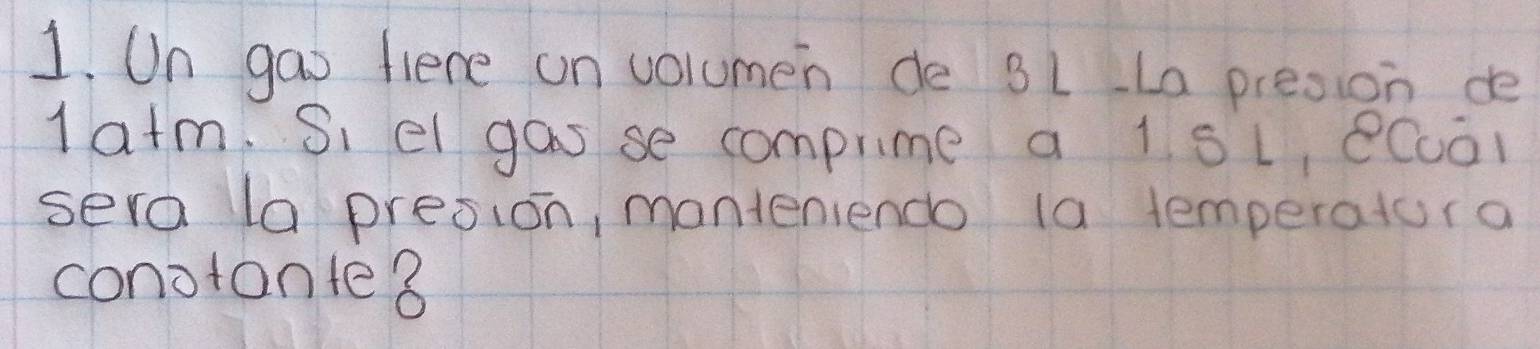 1. Un gas tiene un volumen de 3L. La presión de
1atm. Si el gas se comprime a 1.5L, ¿Cuál
sera la presión, manteniendo la temperatura
constante?